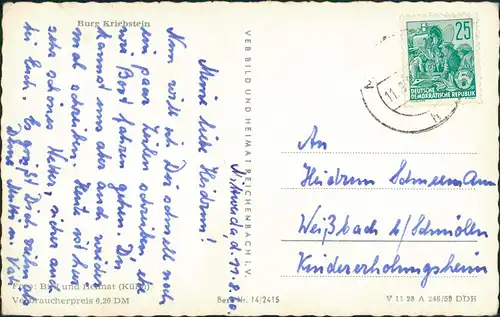 Burg Kriebstein
Mittweida, d. 11.8.60.
Meine liebe Heidrun!
Nun will ich Dir schnell noch
ein paar Zeilen schreiben ehe
wir Boot fahren gehen. Du
kannst uns aber auch wieder
mal schreiben. Heute ist hier
sehr schönes Wetter, sicher auch
bei Euch. Es grüßt Dich vielmals
Deine Mutti u. Vati
Foto: Bild und Heimat
Verbraucherpreis 0,20 DM
VEB BILD UND HEIMAT REICHENBACH I. V.
Best.-Nr. 14/2415
25
DEUTSCHE
DEMOKRATISCHE REPUBLIK
An
Heidrun
Weißbach b/Schmölln
Kindererholungsheim
V 11 28 A 246/59 DDR